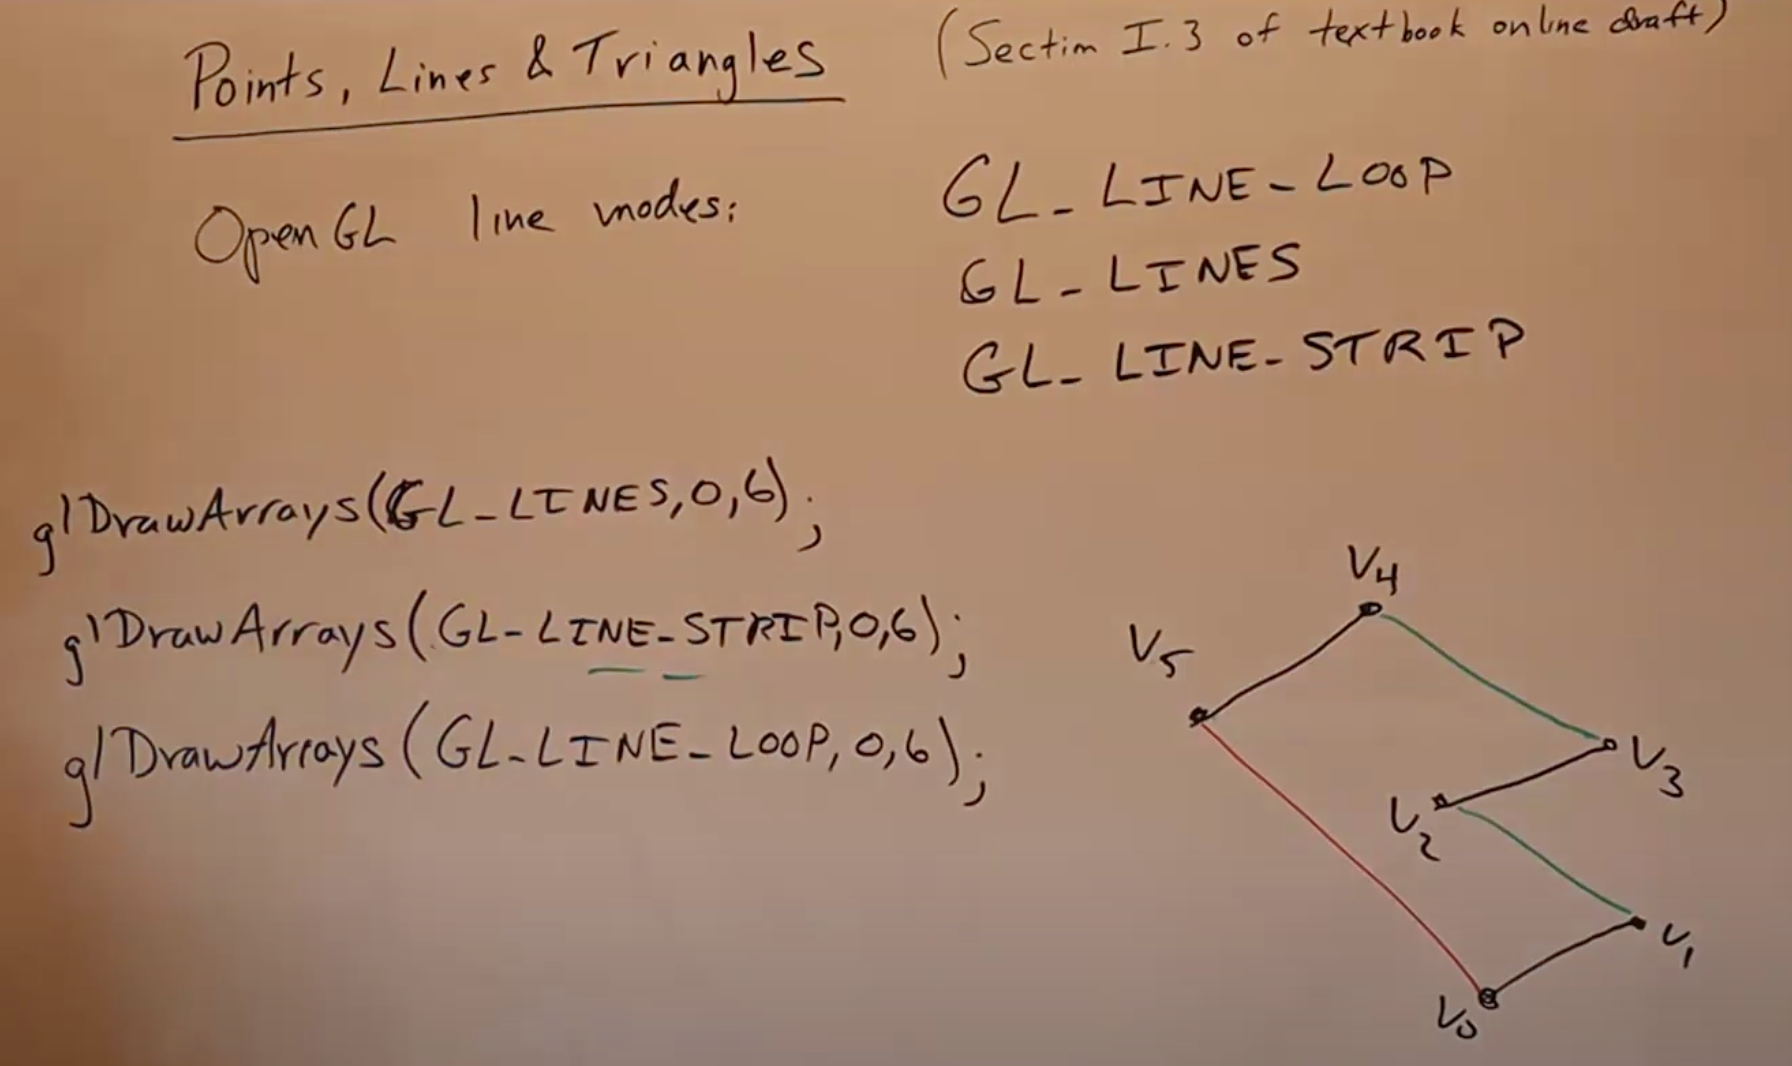 Points, Lines & Triangles (Section I.3 of textbook online draft)
OpenGL line modes: GL_LINE_LOOP
GL_LINES
GL_LINE_STRIP
glDrawArrays(GL_LINES,0,6);
glDrawArrays(GL_LINE_STRIP,0,6);
glDrawArrays(GL_LINE_LOOP,0,6);
V4
V5
V3
V2
V1
V0